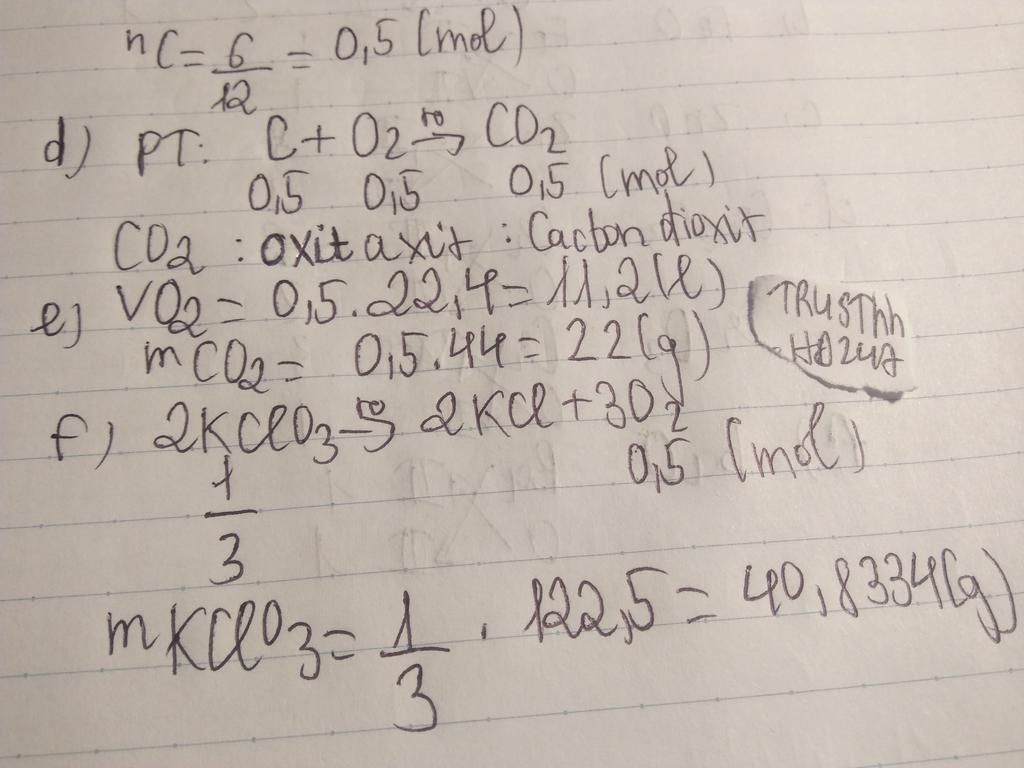 nC = 6/12 = 0,5 (mol)
d) PT: C + O2 t° → CO2
0,5 0,5 0,5 (mol)
CO2 : oxit axit : Cacbon đioxit
e) VO2 = 0,5 . 22,4 = 11,2 (l)
mCO2 = 0,5 . 44 = 22 (g)
TRUSThh
f) 2KClO3 t° → 2KCl + 3O2
1/3 0,5 (mol)
mKClO3 = 1/3 . 122,5 = 40,8334 (g)